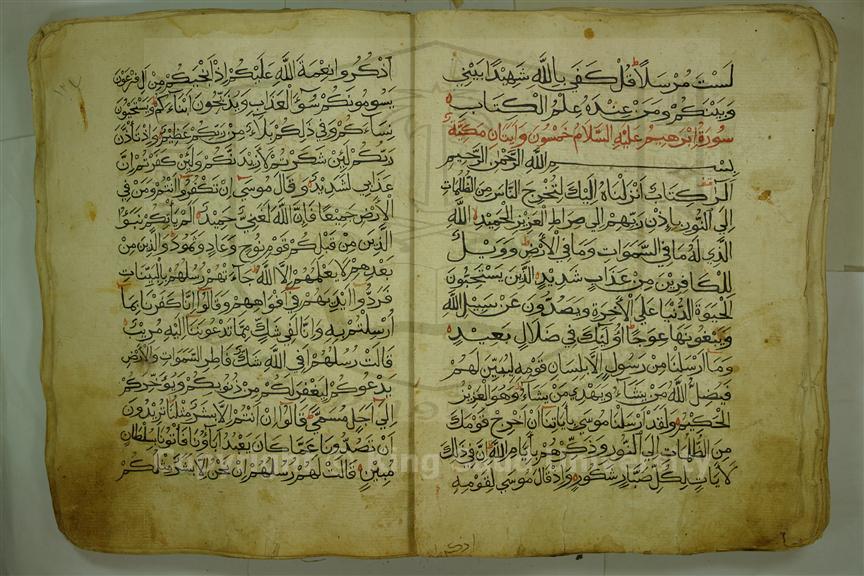 لست مرسلا قل كفى بالله شهيدا بيني
وبينكم ومن عنده علم الكتاب
سورة ابرهيم عليه السلام خمسون وايتان مكية
بسم الله الرحمن الرحيم
الر كتاب انزلناه اليك لتخرج الناس من الظلمات
الى النور باذن ربهم الى صراط العزيز الحميد الله
الذي له ما في السموات وما في الأرض وويل
للكافرين من عذاب شديد الذين يستحبون
الحيوة الدنيا على الآخرة ويصدون عن سبيل الله
ويبغونها عوجا أوليك في ضلال بعيد
وما أرسلنا من رسول إلا بلسان قومه ليبين لهم
فيضل الله من يشاء ويهدي من يشاء وهو العزيز
الحكيم ولقد ارسلنا موسى باياتنا ان اخرج قومك
من الظلمات الى النور وذكرهم بايام الله ان في ذلك
لآيات لكل صبار شكور واذ قال موسى لقومه
اذكروا
اذكروا نعمة الله عليكم اذ انجيكم من ال فرعون
يسومونكم سوء العذاب ويذبحون ابناءكم ويستحيون
نساءكم وفي ذلكم بلاء من ربكم عظيم واذ تأذن
ربكم لئن شكرتم لأزيدنكم ولئن كفرتم ان
عذابي لشديد وقال موسى ان تكفروا انتم ومن في
الارض جميعا فان الله لغني حميد الم يأتكم نبؤا
الذين من قبلكم قوم نوح وعاد وثمود والذين من
بعدهم لا يعلمهم الا الله جاءتهم رسلهم بالبينات
فردوا ايديهم في افواههم وقالوا انا كفرنا بما
ارسلتم به وانا لفي شك مما تدعوننا اليه مريب
قالت رسلهم افي الله شك فاطر السموات والأرض
يدعوكم ليغفر لكم من ذنوبكم ويؤخركم
الى اجل مسمى قالوا ان انتم الا بشر مثلنا تريدون
ان تصدونا عما كان يعبد اباؤنا فأتونا بسلطان
مبين قالت لهم رسلهم ان نحن الا بشر مثلكم